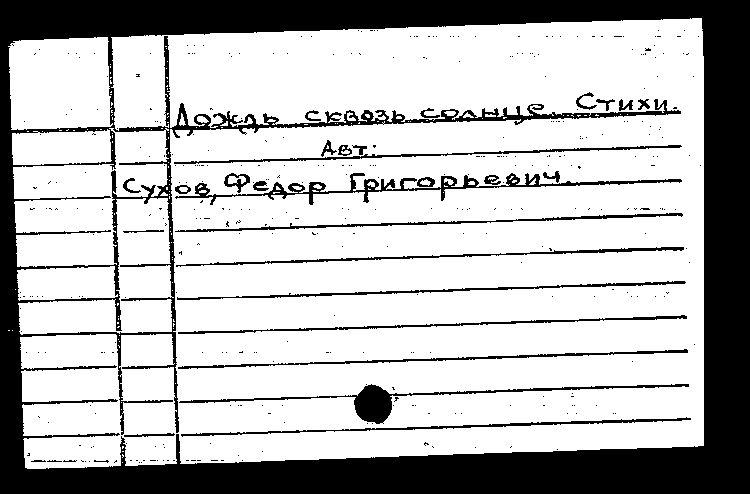 Дождь сквозь солнце. Стихи.
Авт.:
Сухов, Федор Григорьевич.